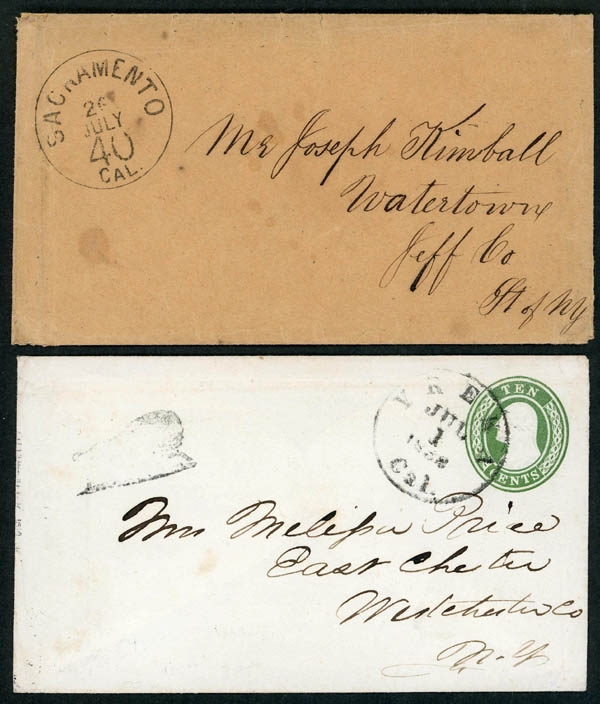 SACRAMENTO
JULY
40
CAL.
Mr Joseph Kimball
Watertown
Jeff Co
St of NY
TEN
CENTS
YREKA
JUL
1
Cal.
Mrs Melissa Price
East Chester
Westchester Co
N.Y